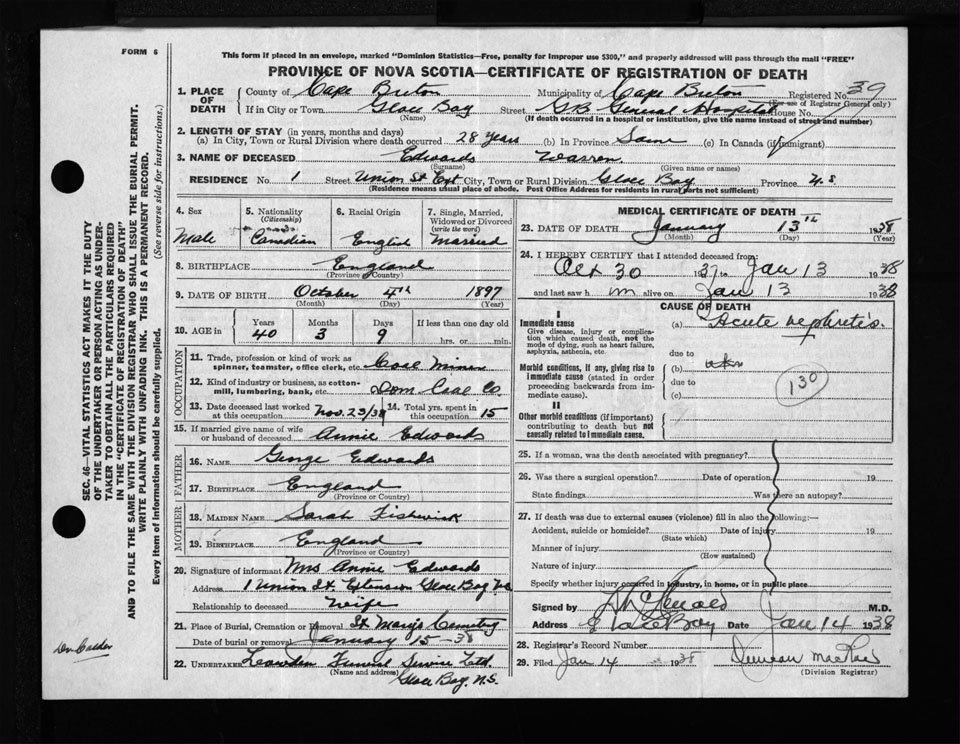 FORM 6
This form if placed in an envelope, marked "Dominion Statistics—Free, penalty for improper use $300," and properly addressed will pass through the mail "FREE"
PROVINCE OF NOVA SCOTIA—CERTIFICATE OF REGISTRATION OF DEATH
1. PLACE OF DEATH County of Cape Breton Municipality of Cape Breton Registered No. 39
(For use of Registrar General only)
If in City or Town Glace Bay Street G.B. General Hospital House No.
(Name) (If death occurred in a hospital or institution, give the name instead of street and number)
2. LENGTH OF STAY (in years, months and days)
(a) In City, Town or Rural Division where death occurred 28 years (b) In Province Same (c) In Canada (if immigrant)
3. NAME OF DECEASED Edwards Warren
(Surname) (Given name or names)
RESIDENCE No. 1 Street Union St Ext City, Town or Rural Division Glace Bay Province N.S.
(Residence means usual place of abode. Post Office Address for residents in rural parts not sufficient)
4. Sex Male
5. Nationality (Citizenship) Canadian
6. Racial Origin English
7. Single, Married, Widowed or Divorced (write the word) Married
8. BIRTHPLACE England
(Province or Country)
9. DATE OF BIRTH October 4th 1897
(Month) (Day) (Year)
10. AGE in Years 40 Months 3 Days 9 If less than one day old
hrs. or min.
OCCUPATION
11. Trade, profession or kind of work as spinner, teamster, office clerk, etc. Coal Miner
12. Kind of industry or business, as cotton-mill, lumbering, bank, etc. Dom Coal Co.
13. Date deceased last worked at this occupation Nov. 23/38 14. Total yrs. spent in this occupation 15
15. If married give name of wife or husband of deceased Annie Edwards
FATHER
16. NAME George Edwards
17. BIRTHPLACE England
(Province or Country)
MOTHER
18. MAIDEN NAME Sarah Fishwick
19. BIRTHPLACE England
(Province or Country)
20. Signature of informant Mrs Annie Edwards
Address 1 Union St. Extension Glace Bay
Relationship to deceased Wife
21. Place of Burial, Cremation or Removal St Marys Cemetery
Date of burial or removal January 15-38
22. UNDERTAKER Funeral Service Ltd.
(Name and address)
Glace Bay. N.S.
MEDICAL CERTIFICATE OF DEATH
23. DATE OF DEATH January 13th 1938
(Month) (Day) (Year)
24. I HEREBY CERTIFY that I attended deceased from:
Oct 30 1937 to Jan 13 1938
and last saw h im alive on Jan 13 1938
CAUSE OF DEATH
I
Immediate cause
Give disease, injury or complication which caused death, not the mode of dying, such as heart failure, asphyxia, asthenia, etc.
(a) Acute nephritis.
due to
Morbid conditions, if any, giving rise to immediate cause (stated in order proceeding backwards from immediate cause).
(b)
due to
(c)
130
II
Other morbid conditions (if important) contributing to death but not causally related to immediate cause.
25. If a woman, was the death associated with pregnancy?
26. Was there a surgical operation? Date of operation 19
State findings Was there an autopsy?
27. If death was due to external causes (violence) fill in also the following:—
Accident, suicide or homicide? Date of injury 19
(State which)
Manner of injury
(How sustained)
Nature of injury
Specify whether injury occurred in industry, in home, or in public place
Signed by M.D.
Address Glace Bay Date Jan 14 1938
28. Registrar's Record Number
29. Filed Jan 14 1938 Duncan MacRae
(Division Registrar)
SEC. 46—VITAL STATISTICS ACT MAKES IT THE DUTY
OF THE UNDERTAKER OR PERSON ACTING AS UNDER-
TAKER TO OBTAIN ALL THE PARTICULARS REQUIRED
IN THE "CERTIFICATE OF REGISTRATION OF DEATH"
AND TO FILE THE SAME WITH THE DIVISION REGISTRAR WHO SHALL ISSUE THE BURIAL PERMIT.
WRITE PLAINLY WITH UNFADING INK. THIS IS A PERMANENT RECORD.
Every item of information should be carefully supplied. (See reverse side for instructions.)
Dr. Calder